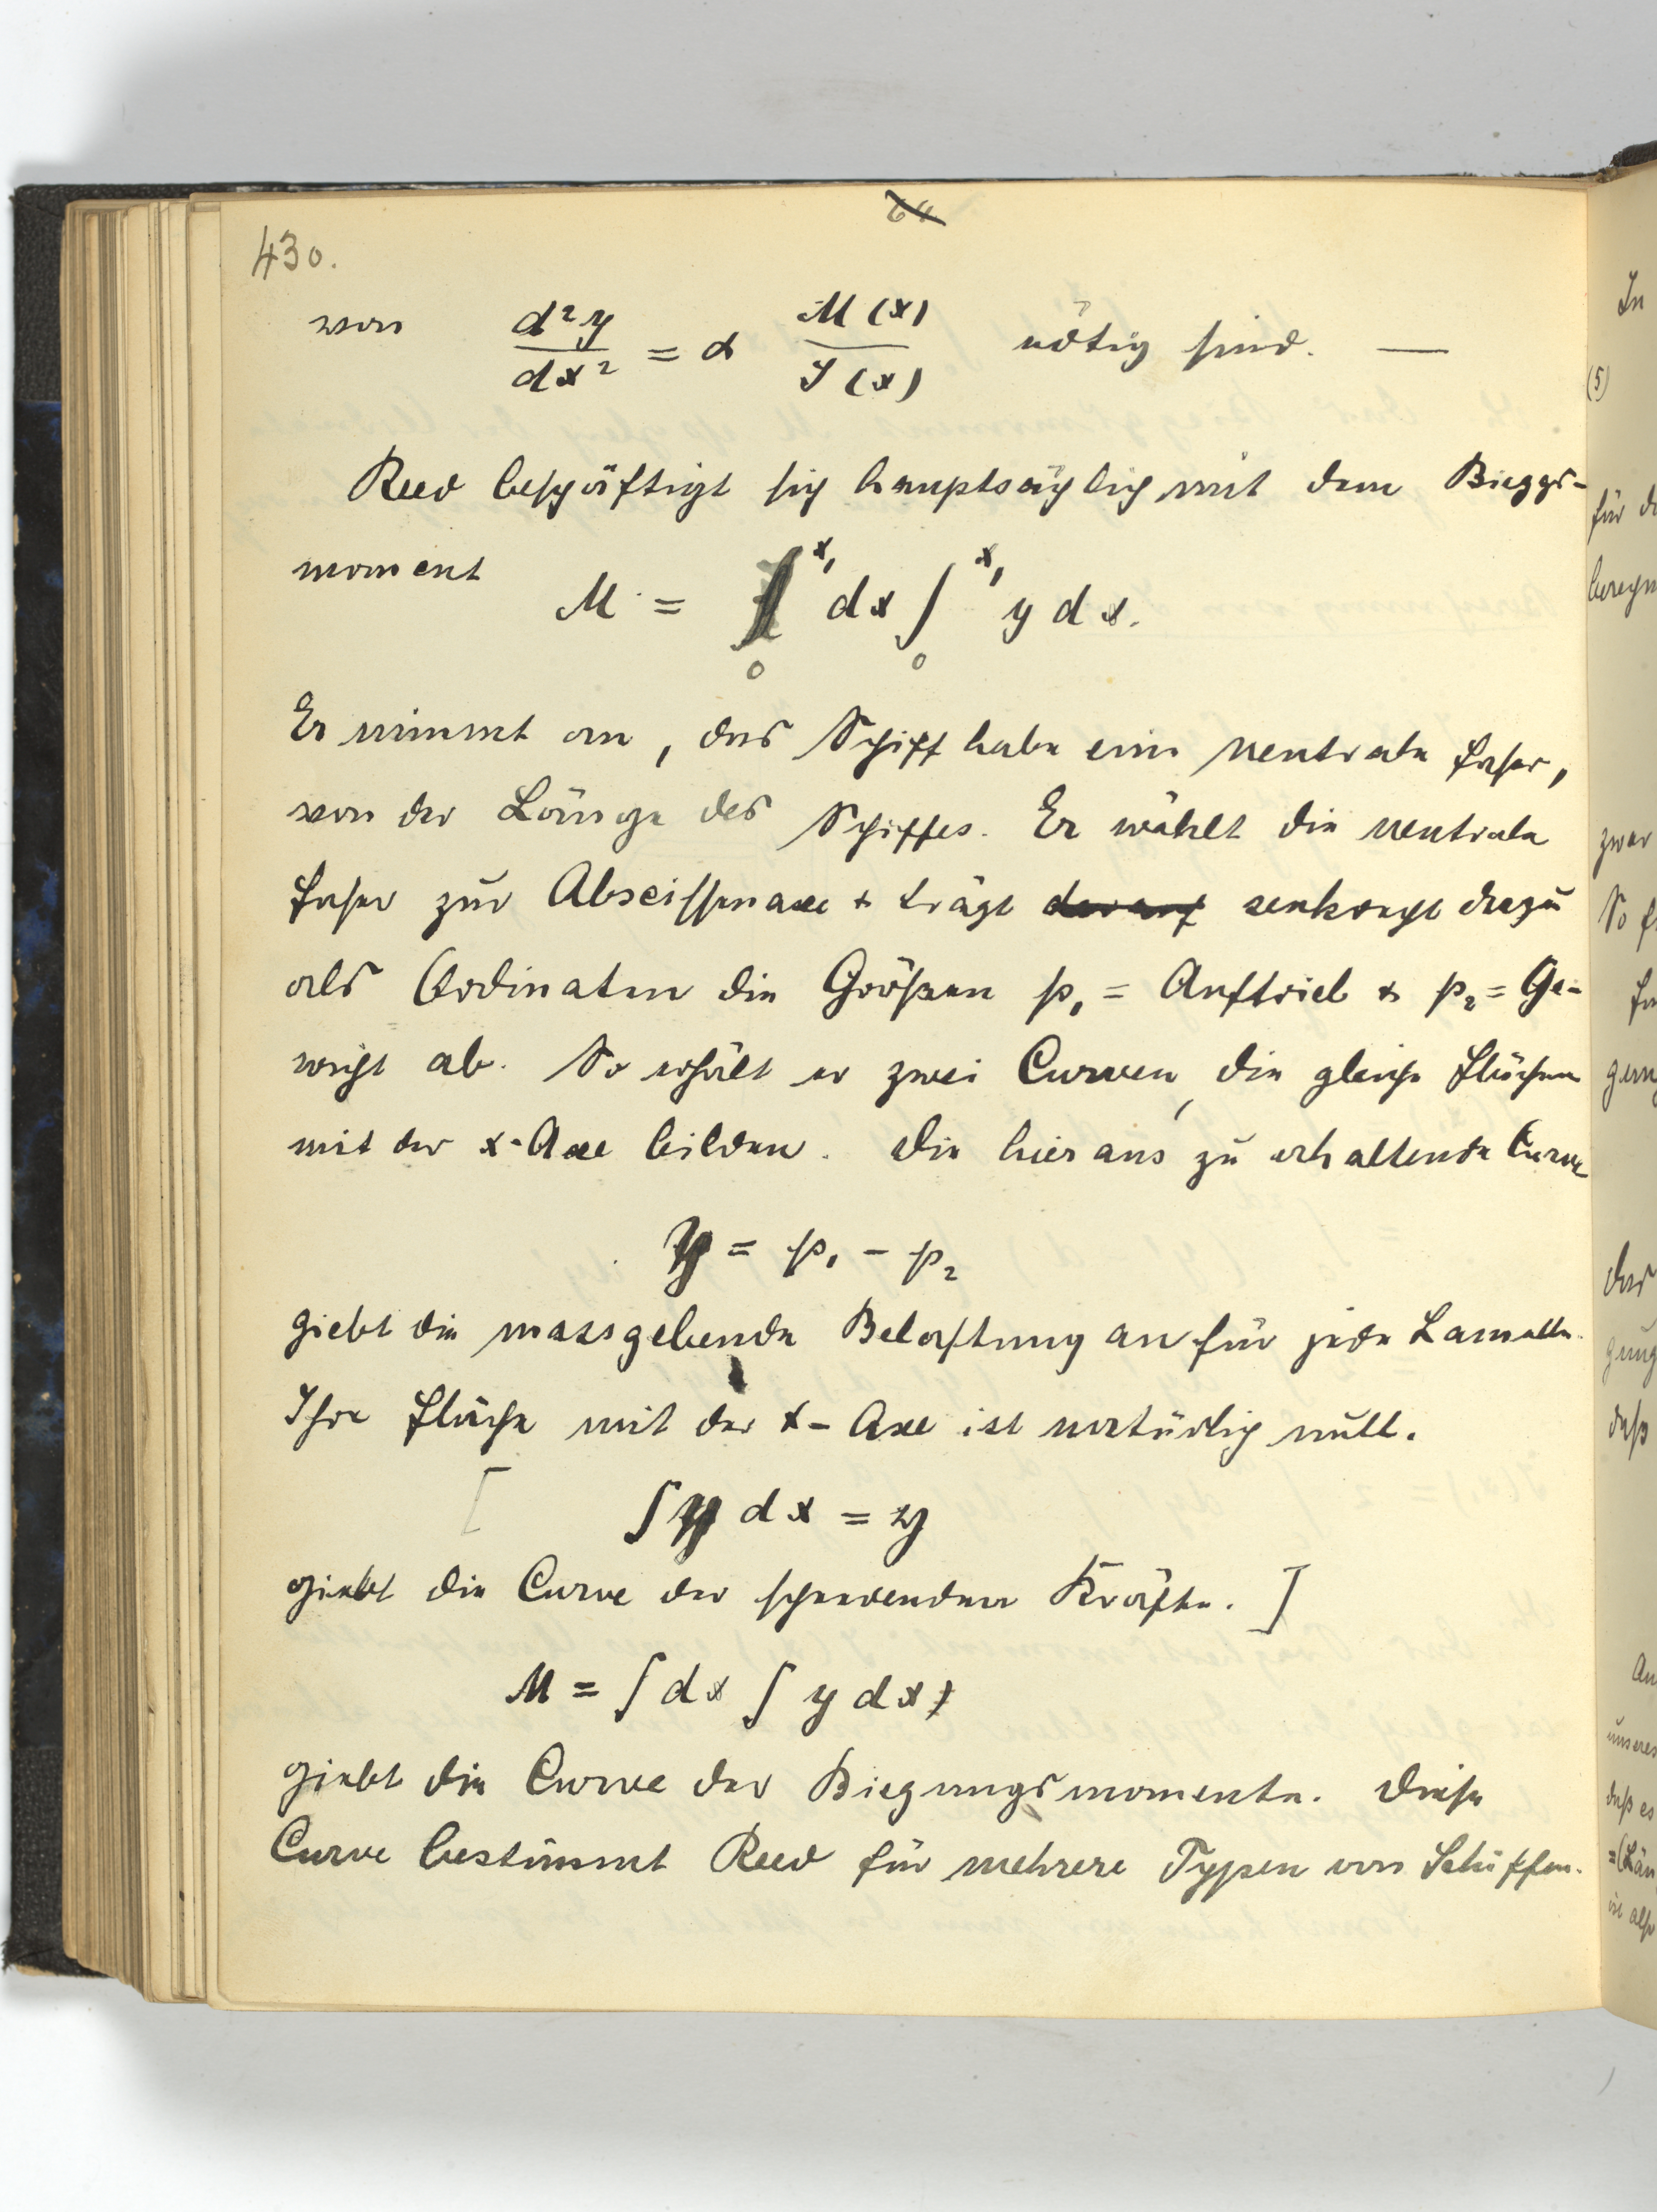 430.
von d²y/dx² = α M(x)/J(x) nötig sind. —
Reed beschäftigt sich hauptsächlich mit dem Bieggs-
moment
M = ∫₀^x₁ dx ∫₀^x₁ y dx.
Er nimmt an, das Schiff habe eine neutrale Faser,
von der Länge des Schiffes. Er wählt die neutrale
Faser zur Abscissenaxe + trägt darauf senkrecht dazu
als Ordinaten die Größen p₁ = Auftrieb & p₂ = Ge-
wicht ab. So erhält er zwei Curven, die gleiche Flächen
mit der x-Axe bilden. Die hieraus zu erhaltende Curve
y = p₁ - p₂
giebt die massgebende Belastung an für jede Lamelle.
Ihre Fläche mit der x-Axe ist natürlich null.
[ ∫ y dx = y
giebt die Curve der scheerenden Kräfte. ]
M = ∫ dx ∫ y dx
giebt die Curve der Biegungsmomente. Diese
Curve bestimmt Reed für mehrere Typen von Schiffen.
In
(5)
für
zwar
So
das
daß
unseres
daß es